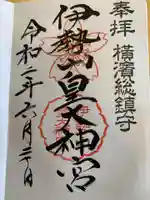 奉拝 横濱総鎮守
伊勢山皇大神宮
令和二年六月二十日